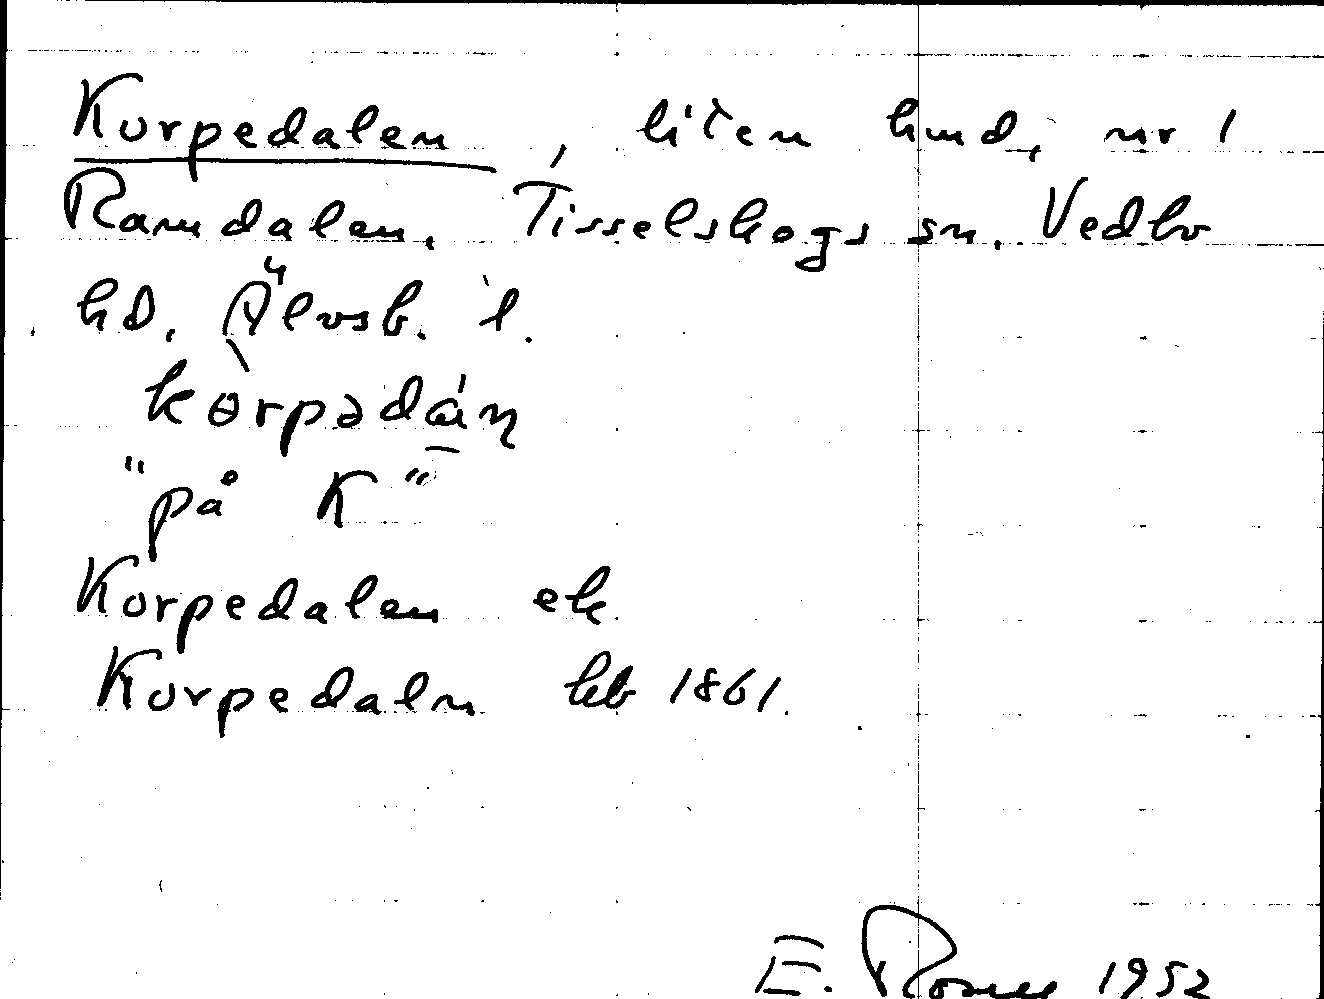 Korpedalen, liten hmd, nr 1
Ramdalen. Tisselskogs sn. Vedbo
hd. Älvsb. l.
kɵ̀rpədán
"på K"
Korpedalen ek.
Korpedaln kb 1861.
E. Rosell 1952